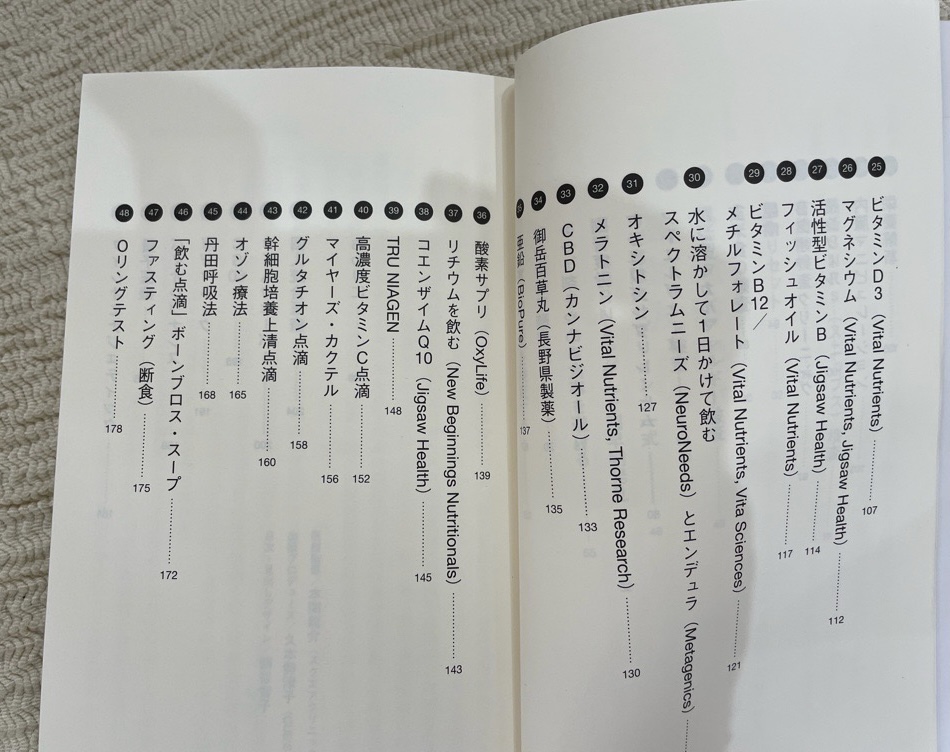 25 ビタミンD3（Vital Nutrients） 107
26 マグネシウム（Vital Nutrients, Jigsaw Health） 112
27 活性型ビタミンB（Jigsaw Health） 114
28 フィッシュオイル（Vital Nutrients） 117
29 ビタミンB12／
メチルフォレート（Vital Nutrients, Vita Sciences） 121
30 水に溶かして1日かけて飲む
スペクトラムニーズ（NeuroNeeds）とエンデュラ（Metagenics）
31 オキシトシン 127
32 メラトニン（Vital Nutrients, Thorne Research） 130
33 CBD（カンナビジオール） 133
34 御岳百草丸（長野県製薬） 135
35 亜鉛（BioPure） 137
36 酸素サプリ（OxyLife） 139
37 リチウムを飲む（New Beginnings Nutritionals） 143
38 コエンザイムQ10（Jigsaw Health） 145
39 TRU NIAGEN 148
40 高濃度ビタミンC点滴 152
41 マイヤーズ・カクテル 156
42 グルタチオン点滴 158
43 幹細胞培養上清点滴 160
44 オゾン療法 165
45 丹田呼吸法 168
46 「飲む点滴」ボーンブロス・スープ 172
47 ファスティング（断食） 175
48 Oリングテスト 178